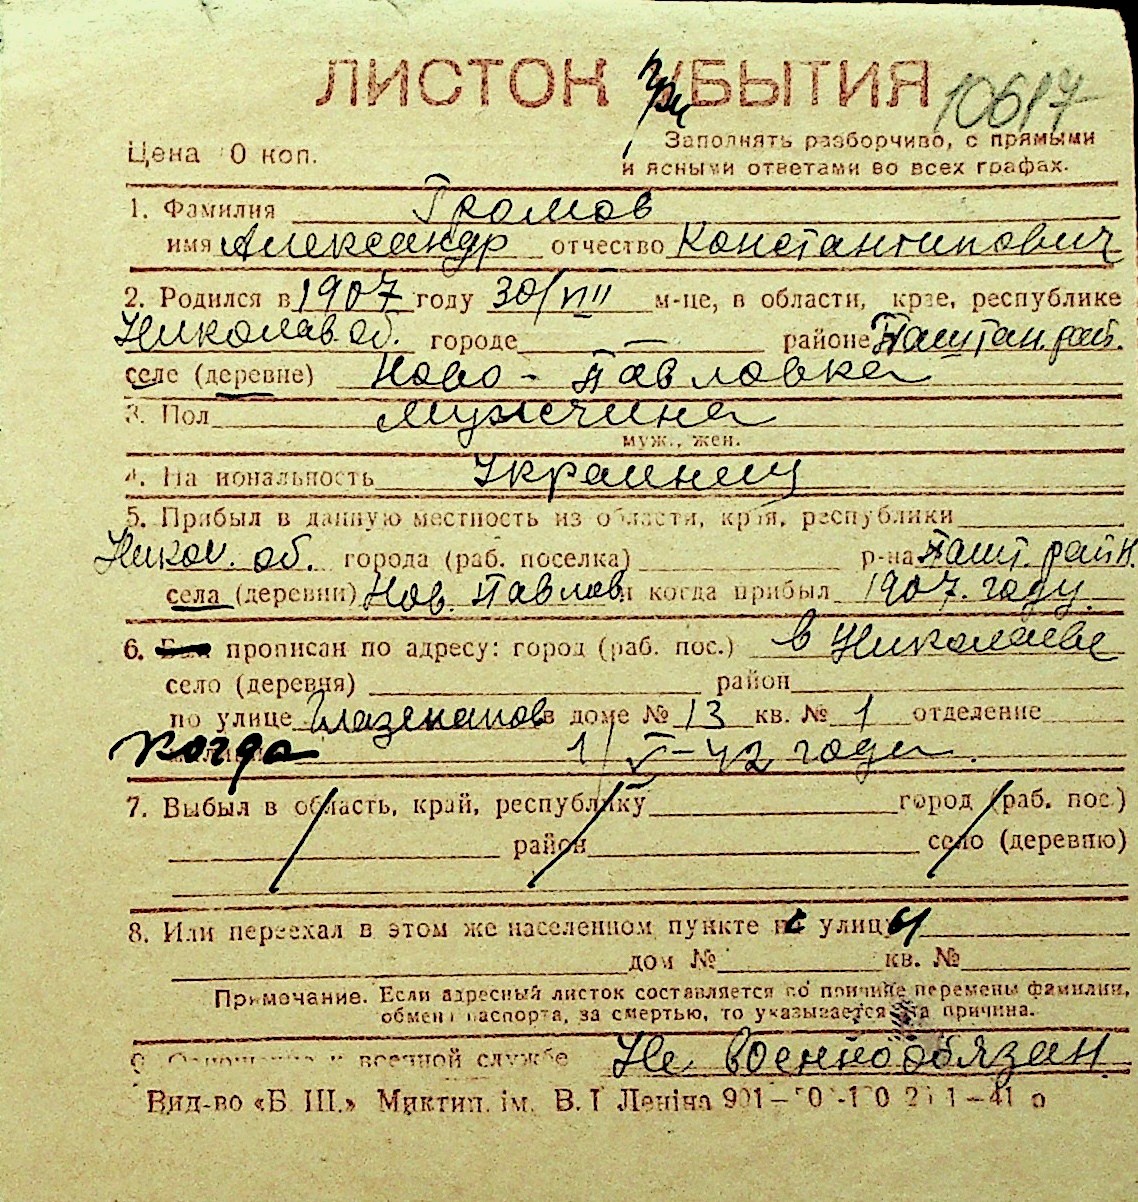 ЛИСТОК УБЫТИЯ 10617
при
Цена 0 коп.
Заполнять разборчиво, с прямыми
и ясными ответами во всех графах.
1. Фамилия Громов
имя Александр отчество Константинович
2. Родился в 1907 году 30/VIII м-це, в области, крае, республике
Николав. об. городе — районе Баштан. рай.
селе (деревне) Ново-Павловка
3. Пол мужчина
муж., жен.
4. На иональность Украинец
5. Прибыл в данную местность из области, края, республики
Никол. об. города (раб. поселка) р-на Башт. райн.
села (деревни) Нов. Павлов. и когда прибыл 1907. году.
6. прописан по адресу: город (раб. пос.) в Николаеве
село (деревня) район
по улице Глазенапов в доме № 13 кв. № 1 отделение
когда 1/V-42 года.
7. Выбыл в область, край, республику город (раб. пос.)
район село (деревню)
8. Или переехал в этом же населенном пункте с улицы
дом № кв. №
Примечание. Если адресный листок составляется по причине перемены фамилии,
обмена паспорта, за смертью, то указывается эта причина.
9. Отношение к военной службе Не военнообязан.
Вид-во «Б. Ш.» Миктип. ім. В. І Леніна